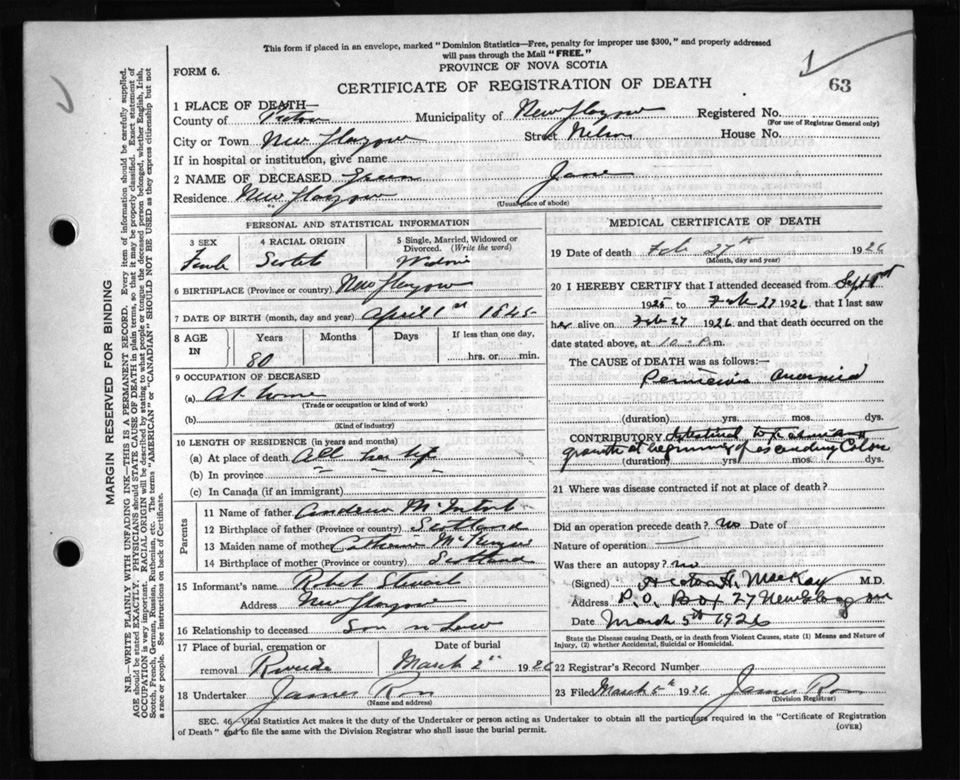 This form if placed in an envelope, marked "Dominion Statistics—Free, penalty for improper use $300," and properly addressed
will pass through the Mail "FREE."
PROVINCE OF NOVA SCOTIA
FORM 6.
CERTIFICATE OF REGISTRATION OF DEATH
63
MARGIN RESERVED FOR BINDING
N.B.—WRITE PLAINLY WITH UNFADING INK—THIS IS A PERMANENT RECORD. Every item of information should be carefully supplied.
AGE should be stated EXACTLY. PHYSICIANS should STATE CAUSE OF DEATH in plain terms, so that it may be properly classified. Exact statement of
OCCUPATION is very important. RACIAL ORIGIN will be described by stating to what people or tongue the deceased person belonged, whether English, Irish,
Scotch, French, German, Russian, Ruthenian, etc. The terms "AMERICAN" or "CANADIAN" SHOULD NOT BE USED as they express citizenship but not
a race or people. See instructions on back of Certificate.
1 PLACE OF DEATH—
County of Pictou Municipality of New Glasgow Registered No.
(For use of Registrar General only)
City or Town New Glasgow Street Nelson House No.
If in hospital or institution, give name
2 NAME OF DECEASED Green Jane
Residence New Glasgow
(Usual place of abode)
PERSONAL AND STATISTICAL INFORMATION
3 SEX 4 RACIAL ORIGIN 5 Single, Married, Widowed or
Divorced. (Write the word)
Female Scotch Widow
6 BIRTHPLACE (Province or country) New Glasgow
7 DATE OF BIRTH (month, day and year) April 1st 1845
8 AGE IN Years Months Days If less than one day,
80 hrs. or min.
9 OCCUPATION OF DECEASED
(a) At home
(Trade or occupation or kind of work)
(b)
(Kind of industry)
10 LENGTH OF RESIDENCE (in years and months)
(a) At place of death All her life
(b) In province " " "
(c) In Canada (if an immigrant)
Parents
11 Name of father Andrew McIntosh
12 Birthplace of father (Province or country) Scotland
13 Maiden name of mother Catherine
14 Birthplace of mother (Province or country) Scotland
15 Informant's name Robert Stewart
Address New Glasgow
16 Relationship to deceased Son n Law
17 Place of burial, cremation or Date of burial
removal Riverside March 2nd 1926
18 Undertaker James Ross
(Name and address)
MEDICAL CERTIFICATE OF DEATH
19 Date of death Feb 27th 1926
(Month, day and year)
20 I HEREBY CERTIFY that I attended deceased from Sept
1925 to Feb 27 1926, that I last saw
her alive on Feb 27 1926 and that death occurred on
date stated above, at 10 P.m.
The CAUSE OF DEATH was as follows:—
Pernicious Anaemia
(duration) yrs. mos. dys.
CONTRIBUTORY
growth at beginning of descending Colon
(duration) yrs. mos. dys.
21 Where was disease contracted if not at place of death?
Did an operation precede death? No Date of
Nature of operation —
Was there an autopsy? no
(Signed) H. MacKay M.D.
Address P.O. Box 27 New Glasgow
Date March 5th 1926
State the Disease causing Death, or in death from Violent Causes, state (1) Means and Nature of
Injury, (2) whether Accidental, Suicidal or Homicidal.
22 Registrar's Record Number
23 Filed March 5th 1926 James Ross
(Division Registrar)
SEC. 46—Vital Statistics Act makes it the duty of the Undertaker or person acting as Undertaker to obtain all the particulars required in the "Certificate of Registration
of Death" and to file the same with the Division Registrar who shall issue the burial permit. (OVER)